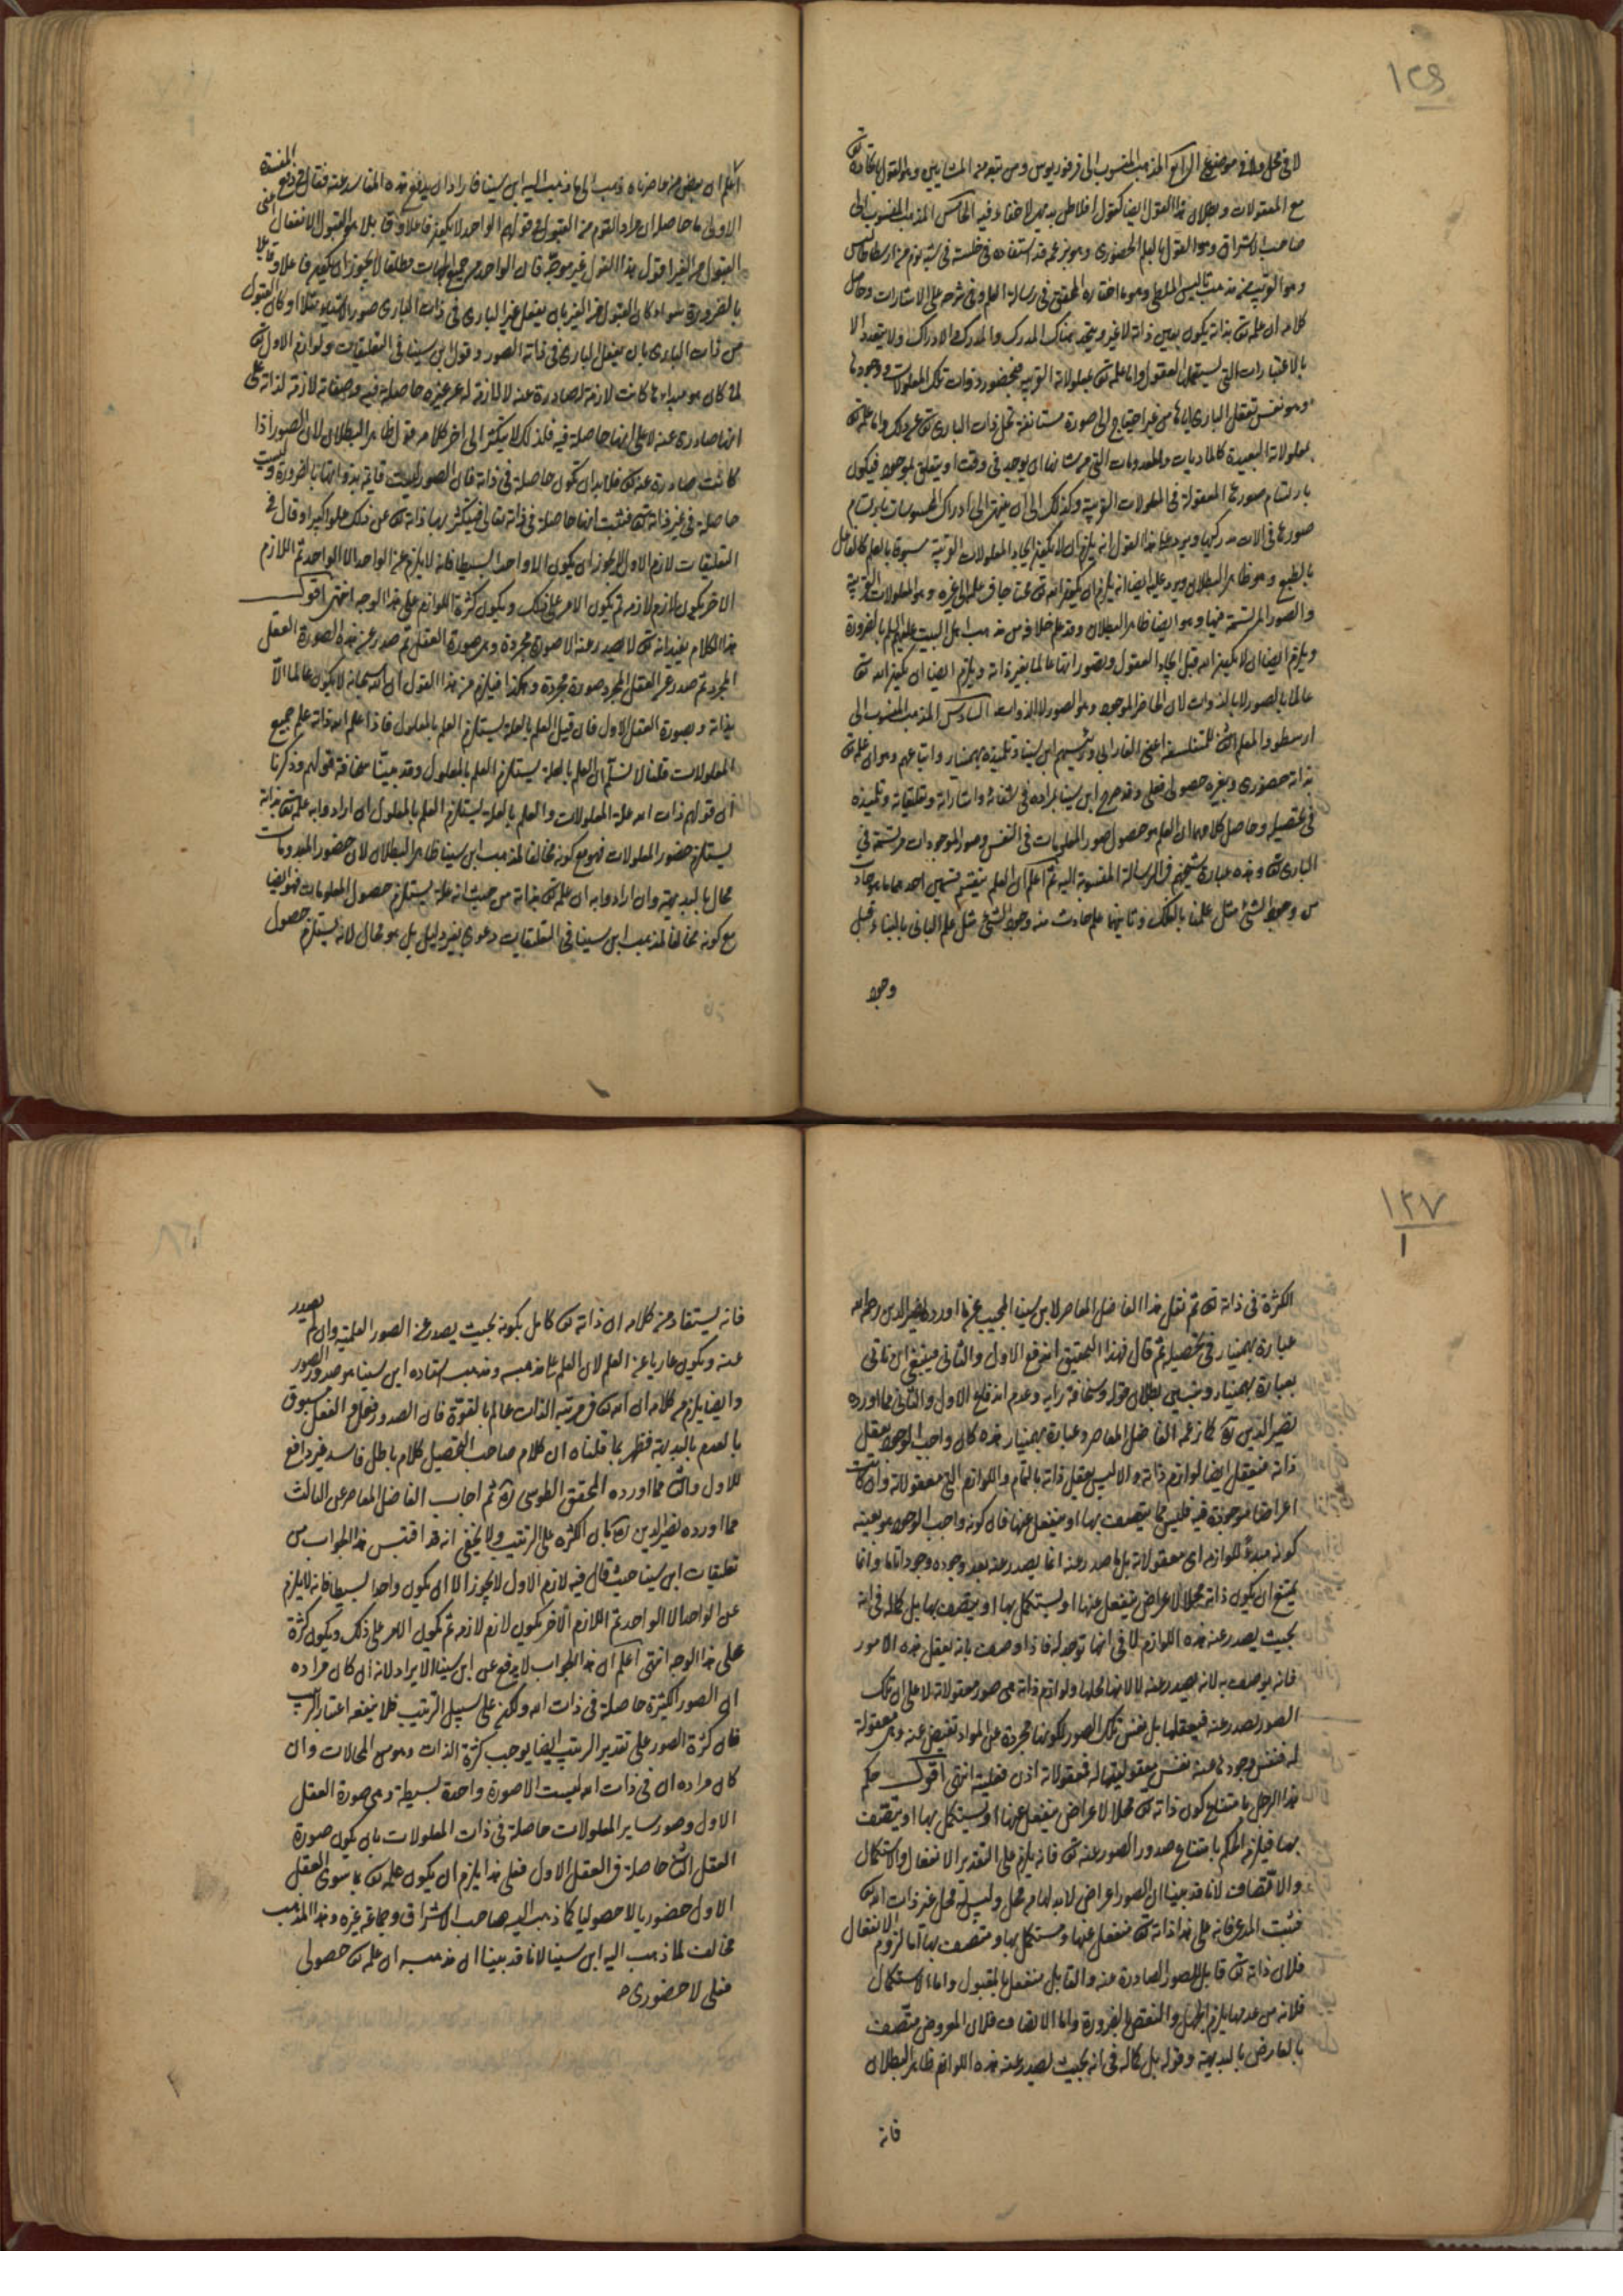 ١٢٦
لا فى محل ولا فى موضوع الرابع المذهب المنسوب الى فرفوريوس ومن تبعه من المشايين وهو القول باتحاده تعالى
مع المعقولات وبطلان هذا القول ايضا كقول افلاطن بديهى لا خفاء فيه الخامس المذهب المنسوب الى
صاحب الاشراق وهو القول بالعلم الحضورى وهو بزعمه قد استفاده فى خلسته فى شبه نوم من ارسطاطاليس
وهو القريب من مذهب ثاليس الملطى وهو ما اختاره المحقق فى رسالة العلم وفى شرحه على الاشارات وحاصل
كلامه ان علمه تع بذاته يكون بعين ذاته لا غير ويتحد هناك المدرك والمدرك والادراك ولا يتعدد الا
بالاعتبارات التى يستعملها العقول واما علمه تع بمعلولاته القريبة فبحضور ذوات تلك المعلولات ووجودها
وهو نفس تعقل البارى اياها من غير احتياج الى صورة مستانفة تحل ذات البارى تعالى عن ذلك واما علمه تع
بمعلولاته البعيدة كالماديات والمعدومات التى من شانها ان يوجد فى وقت او يتعلق بموجود فيكون
بارتسام صورها المعقولة فى المعلولات القريبة وكذلك الى ان ينتهى الى ادراك المحسوسات بارتسام
صورها فى الات مدركيها ويرد على هذا القول انه يلزم ان لا يكون ايجاد المعلولات القريبة مسبوقا بالعلم كالفاعل
بالطبع وهو ظاهر البطلان ويرد عليه ايضا انه يلزم ان يكون الله تع محتاجا فى علمه الى غيره وهو المعلولات القريبة
والصور المرتسمة فيها وهو ايضا ظاهر البطلان وقد علم خلافه من مذهب اهل البيت عليهم السلم بالضرورة
ويلزم ايضا ان لا يكون الله قبل ايجاد العقول وتصوراتها عالما بغير ذاته ويلزم ايضا ان يكون الله تع
عالما بالصور لا بالذوات لان الحاضر الموجود هو الصور لا الذوات السادس المذهب المنسوب الى
ارسطو والمعلم الثانى للمتفلسفة اعنى الفارابى ورئيسهم ابن سينا وتلميذه بهمنيار واتباعهم وهو ان علمه تع
بذاته حضورى وبغيره حصولى فعلى وقد صرح ابن سينا بمراده فى شفائه واشاراته وتعليقاته وتلميذه
فى تحصيله وحاصل كلامهما ان العلم هو حصول صور المعلومات فى النفس وصور الموجودات مرتسمة فى
البارى تع وهذه عبارة شيخهم فى الرسالة المنسوبة اليه ثم اعلم ان العلم ينقسم قسمين احدهما ما هو حادث
من وجود الشئ مثل علمنا بالفلك وثانيهما علم حادث منه وجود الشئ مثل علم البانى بالبناء قبل
وجود
اعلم ان بعض معاصرينا ذهب الى ما ذهب اليه ابن سينا فاراد ان يدفع هذه المفاسد عنه فقال فى دفع المفسدة
الاولى ما حاصله ان مراد القوم من القبول فى قولهم الواحد لا يكون فاعلا وقابلا هو القبول الانفعالى اعنى
القبول من الغير اقول هذا القول غير موجه فان الواحد من جميع الجهات مطلقا لا يجوز ان يكون فاعلا وقابلا
بالضرورة سواء كان القبول من الغير بان يفعل غير البارى فى ذات البارى صور الاشياء مثلا او كان القبول
من ذات البارى بان يفعل البارى فى ذاته الصور وقول ابن سينا فى التعليقات ولوازم الاول تع
لما كان هو مبداها كانت لازمة له صادرة عنه لا لازمة له عن غيره حاصلة فيه وصفاته لازمة لذاته على
انها صادرة عنه لا على انها حاصلة فيه فلذلك لا يتكثر الى اخر كلامه قول ظاهر البطلان لان الصور اذا
كانت صادرة عنه تع فلا بد ان تكون حاصلة فى ذاته فان الصور ليست قايمة بذواتها بالضرورة وليست
حاصلة فى غير ذاته تع فثبت انها حاصلة فى ذاته تعالى فيتكثر بها ذاته تع عن ذلك علوا كبيرا وقال فى
التعليقات لازم الاول لا يجوز ان يكون الا واحدا بسيطا فانه لا يلزم عن الواحد الا الواحد ثم اللازم
الاخر يكون لازم لازمه ثم يكون الامر على ذلك ويكون كثرة اللوازم على هذا الوجه انتهى اقول
هذا الكلام يفيد انه تع لا يصدر عنه الا صورة مجردة وهى صورة العقل ثم صدر عن هذه الصورة العقل
المجرد ثم صدر عن العقل المجرد صورة مجردة وهكذا فيلزم من هذا القول ان الله سبحانه لا يكون عالما الا
بذاته وبصورة العقل الاول فان قيل العلم بالعلة يستلزم العلم بالمعلول فاذا علم الله ذاته علم جميع
المعلولات قلنا لا نسلم ان العلم بالعلة يستلزم العلم بالمعلول وقد بينا سخافة قولهم وذكرنا
ان قولهم ذات الله علة المعلولات والعلم بالعلة يستلزم العلم بالمعلول ان ارادوا به علمه تع بذاته
يستلزم حضور المعلولات فهو مع كونه مخالفا لمذهب ابن سينا ظاهر البطلان لان حضور المعدومات
محال بالبديهة وان ارادوا به ان علمه تع بذاته من حيث انه علة يستلزم حصول المعلومات فهو ايضا
مع كونه مخالفا لمذهب ابن سينا فى التعليقات دعوى بغير دليل بل هو محال لانه يستلزم حصول
١٢٧
١
الكثرة فى ذاته تع ثم نقل هذا الفاضل المعاصر لابن سينا المجيب عن ما اورده نصير الدين رحمه الله
عبارة بهمنيار فى تحصيله ثم قال فهذا التحقيق اندفع الاول والثانى فينبغى ان ناتى
بعبارة بهمنيار ونبين بطلان قوله وسخافة رايه وعدم اندفاع الاول والثانى مما اورده
نصير الدين ره كما زعمه الفاضل المعاصر وعبارة بهمنيار هذه كان واجب الوجود يعقل
ذاته فيعقل ايضا لوازم ذاته والا ليس يعقل ذاته بالتمام واللوازم التى معقولاته وان كانت
اعراضا موجودة فيه فليس مما يتصف بها او ينفعل عنها فان كونه واجب الوجود هو بعينه
كونه مبدءً للوازمه اى معقولاته بل ما صدر عنه انما يصدر عنه بعد وجوده وجودا تاما وانما
يمتنع ان يكون ذاته محلا لاعراض ينفعل عنها او يستكمل بها او يتصف بها بل كماله فى انه
بحيث يصدر عنه هذه اللوازم لا فى انها توجد له فاذا وصف بانه يعقل هذه الامور
فانه يوصف به لانه يصدر عنه لا لانها محلها ولوازم ذاته هى صور معقولاته لا على ان تلك
الصور تصدر عنه فيعقلها بل نفس تلك الصور لكونها مجردة عن المواد تفيض عنه وهى معقولة
له فنفس وجودها عنه نفس معقوليتها له فمعقولاته اذن فعلية انتهى اقول حكم
هذا الرجل بامتناع كون ذاته تع محلا لاعراض ينفعل عنها او يستكمل بها او يتصف
بها فيلزم الحكم بامتناع صدور الصور عنه تع فانه يلزم على التقدير الانفعال والاستكمال
والاتصاف لانا قد بينا ان الصور اعراض لا بد لها من محل وليس له محل غير ذات الله تع
فثبت المدعى فانه على هذا ذاته تع منفعل عنها ومستكمل بها ومتصف بها اما لزوم الانفعال
فلان ذاته تع قابل للصور الصادرة عنه والقابل منفعل بالمقبول واما الاستكمال
فلانه من عدمها يلزم الجهل والنقص بالضرورة واما الاتصاف فلان المعروض متصف
بالعارض بالبديهة وقوله بل كماله فى انه بحيث يصدر عنه هذه اللوازم ظاهر البطلان
فانه
فانه يستفاد من كلامه ان ذاته تع كامل بكونه بحيث يصدر عنه الصور العلمية وان لم يصدر
عنه ويكون عاريا عن العلم لان العلم على مذهبه ومذهب استاده ابن سينا هو صدور الصور
وايضا يلزم من كلامه ان الله تع فى مرتبة الذات عالم بالقوة فان الصدور فعل والفعل مسبوق
بالعدم بالبديهة فظهر بما قلناه ان كلام صاحب التحصيل كلام باطل فاسد غير دافع
للاول والثانى مما اورده المحقق الطوسى ره ثم اجاب الفاضل المعاصر عن الثالث
مما اورده نصير الدين ره بان الكثرة على الترتيب ولا يخفى انه قد اقتبس هذا الجواب من
تعليقات ابن سينا حيث قال فيه لازم الاول لا يجوز الا ان يكون واحدا بسيطا فانه لا يلزم
عن الواحد الا الواحد ثم اللازم الاخر يكون لازم لازمه ثم يكون الامر على ذلك ويكون كثرة
على هذا الوجه انتهى اعلم ان هذا الجواب لا يدفع عن ابن سينا الايراد لانه ان كان مراده
ان الصور الكثيرة حاصلة فى ذات الله ولكن على سبيل الترتيب فلا ينفعه اعتبار الترتيب
فان كثرة الصور على تقدير الترتيب ايضا يوجب كثرة الذات وهو من المحالات وان
كان مراده ان فى ذات الله ليست الا صورة واحدة بسيطة وهى صورة العقل
الاول وصور ساير المعلولات حاصلة فى ذات المعلولات بان يكون صورة
العقل الثانى حاصلة فى العقل الاول فعلى هذا يلزم ان يكون علمه تع بما سوى العقل
الاول حضوريا لا حصوليا كما ذهب اليه صاحب الاشراق وجماعة غيره وهذا المذهب
مخالف لما ذهب اليه ابن سينا لانا قد بينا ان مذهبه ان علمه تع حصولى
فعلى لا حضورى